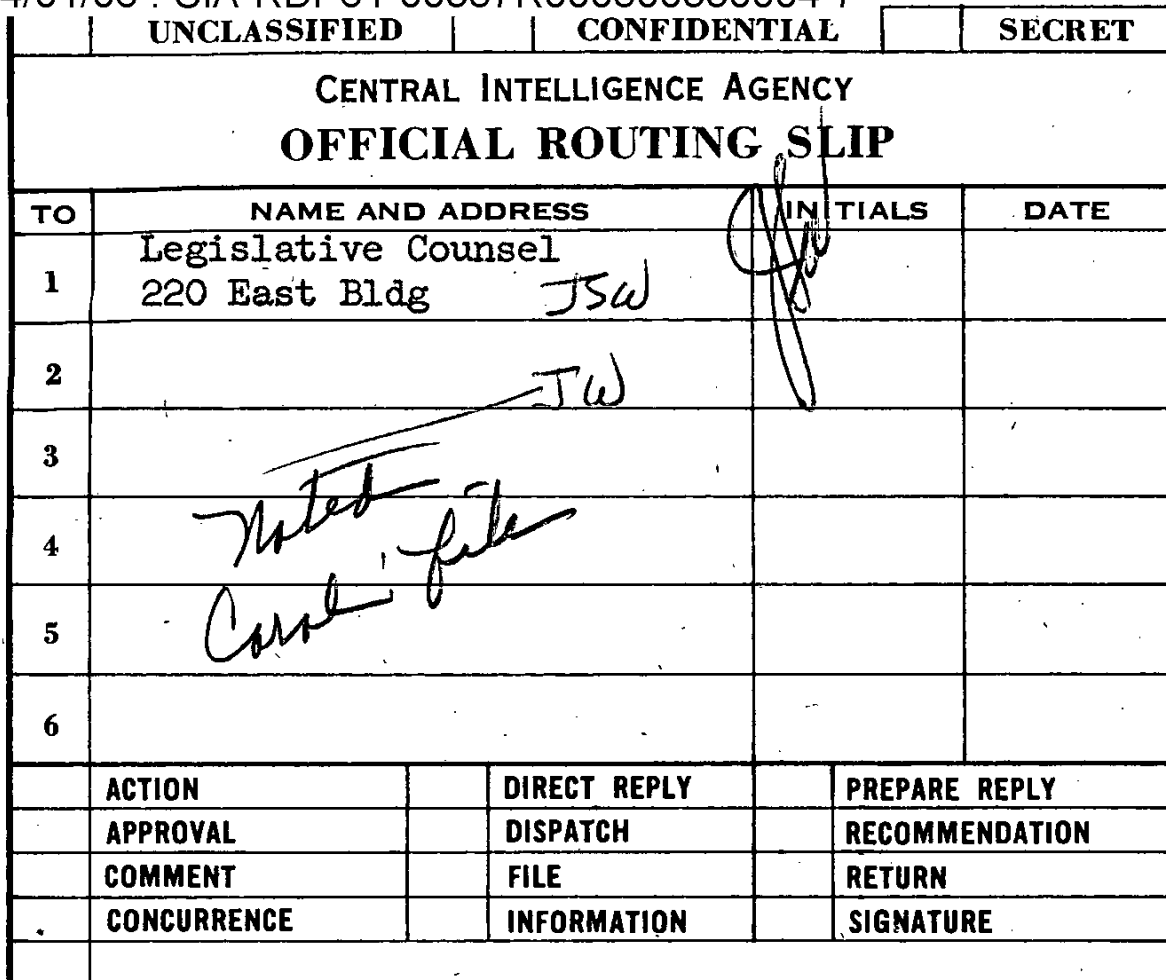 UNCLASSIFIED CONFIDENTIAL SECRET
CENTRAL INTELLIGENCE AGENCY
OFFICIAL ROUTING SLIP
TO NAME AND ADDRESS INITIALS DATE
1 Legislative Counsel
220 East Bldg JSW
2 JW
3
4 Noted
file
5 Carol
6
ACTION DIRECT REPLY PREPARE REPLY
APPROVAL DISPATCH RECOMMENDATION
COMMENT FILE RETURN
CONCURRENCE INFORMATION SIGNATURE